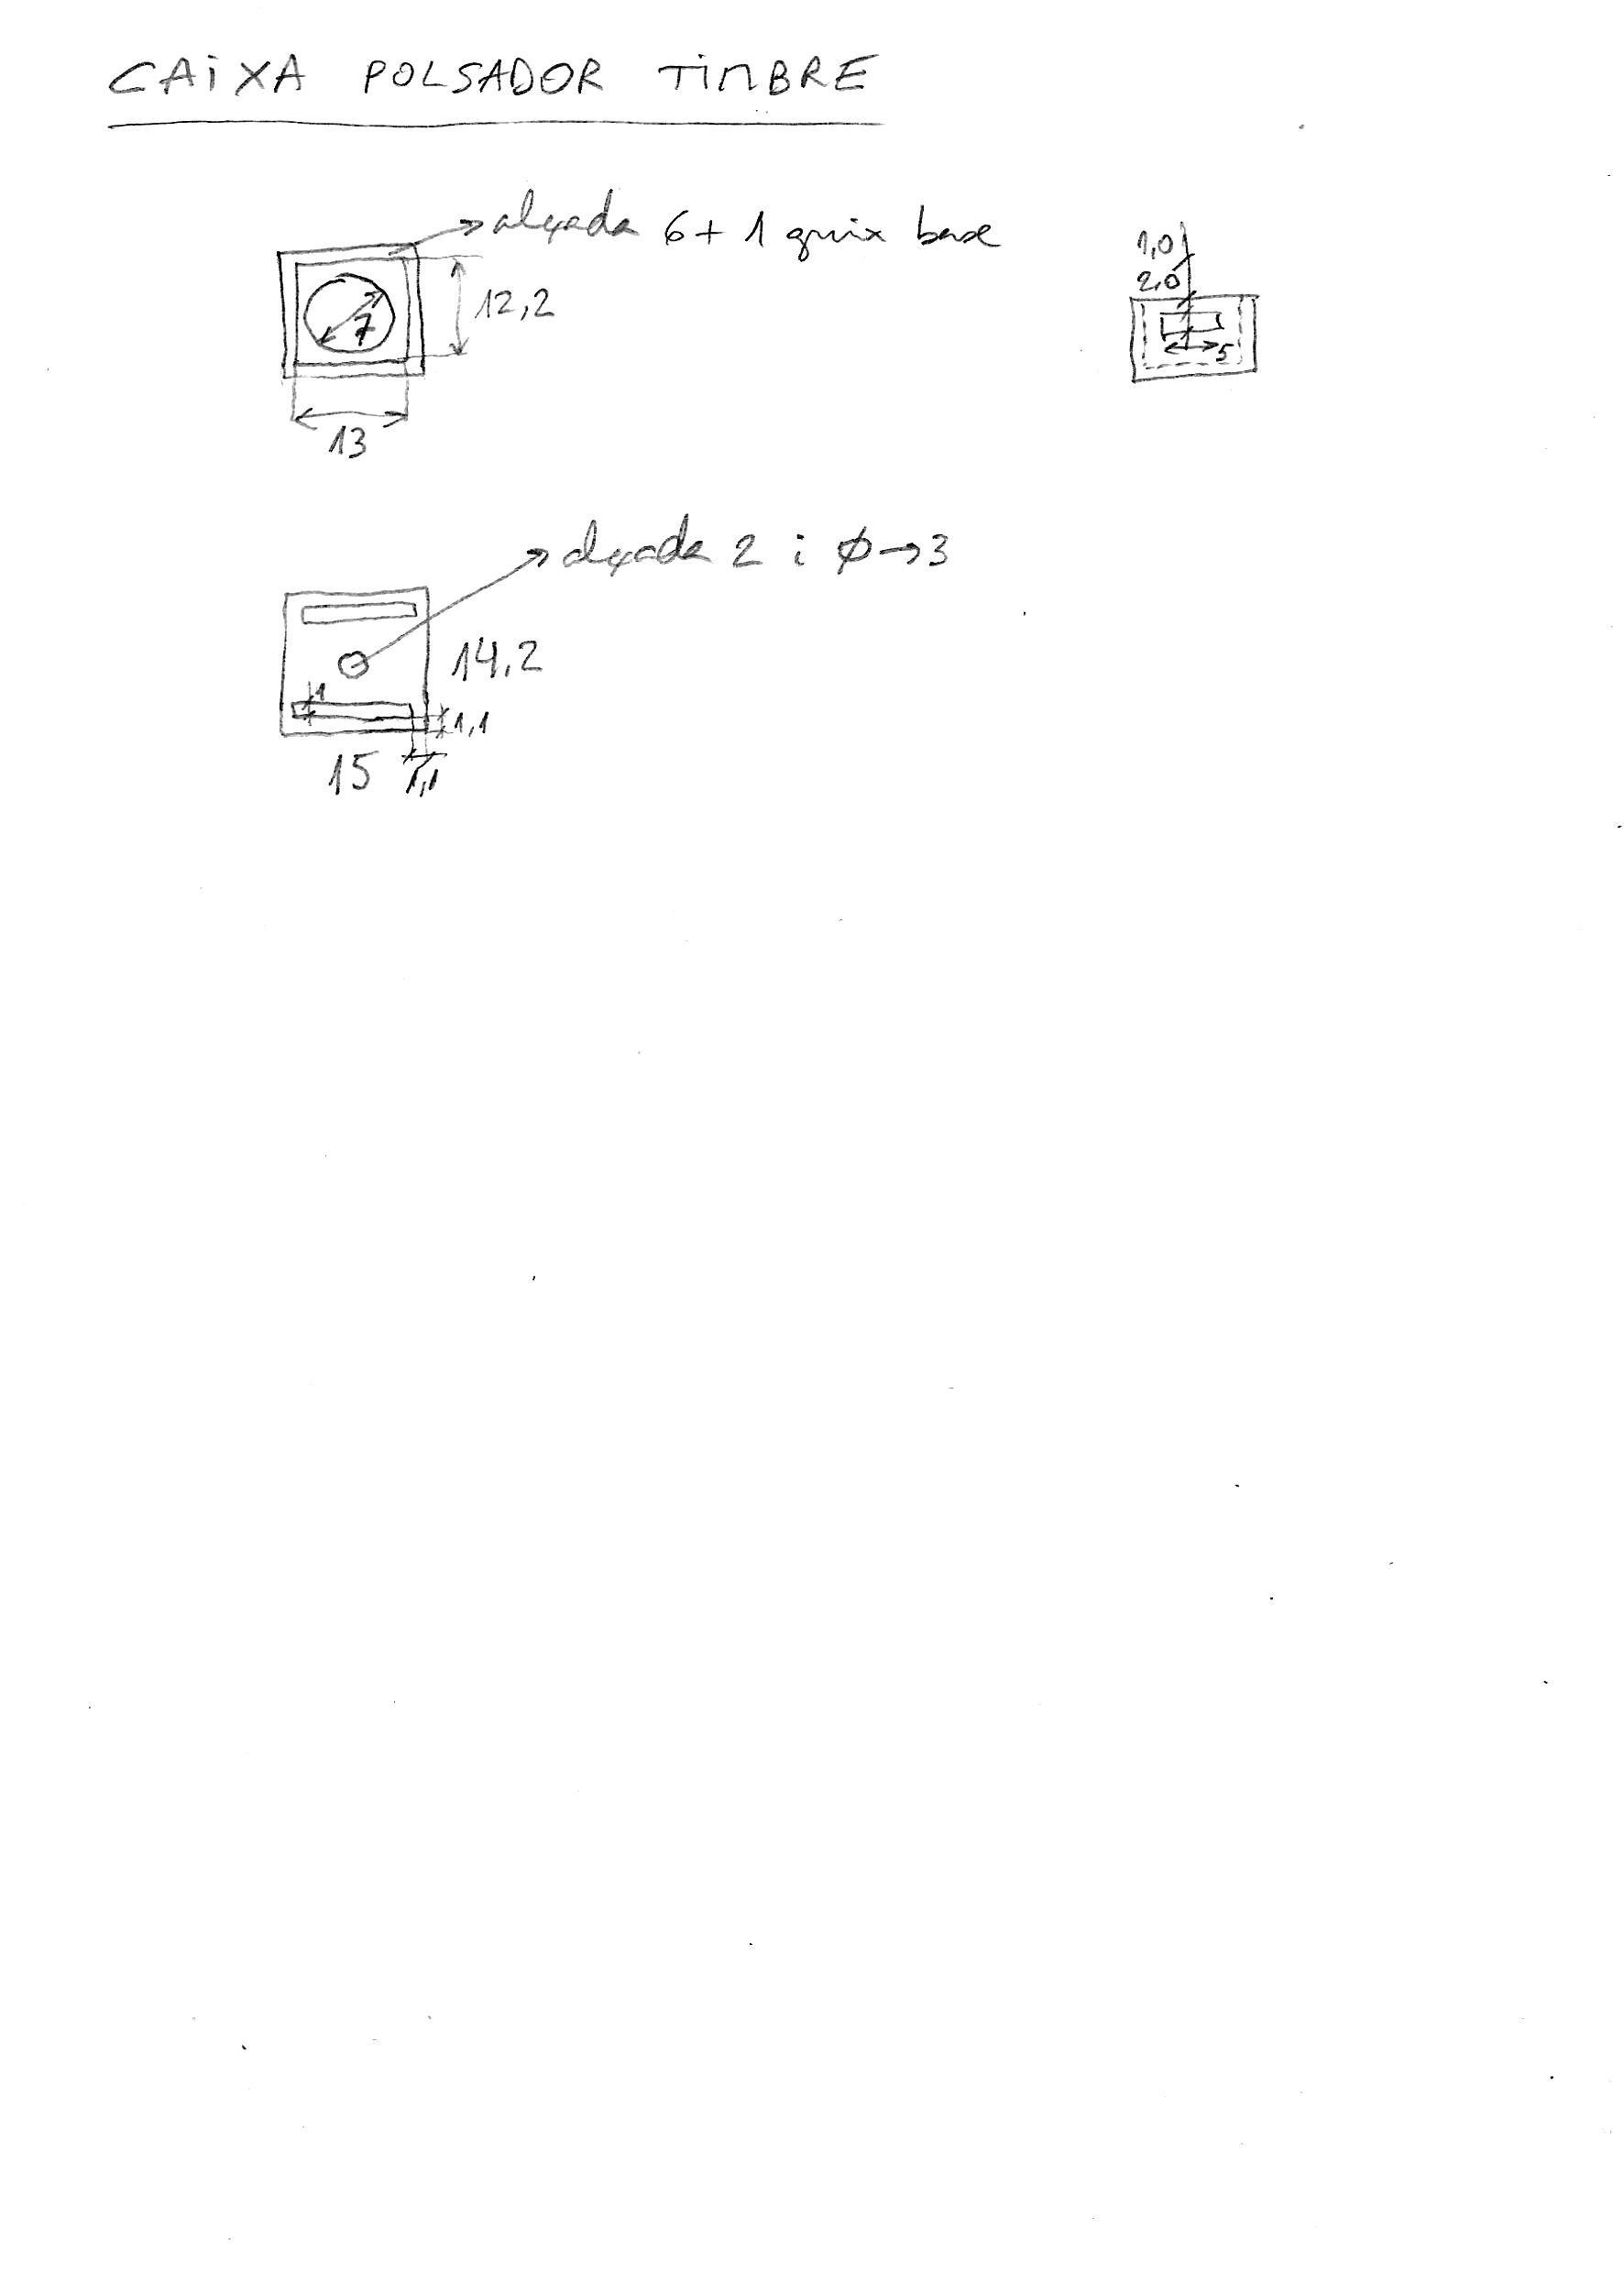 CAiXA POLSADOR TiMBRE
alçada 6 + 1 gruix base
1,0
2,0
12,2
7
5
13
alçada 2 i ø→3
14,2
1
1,1
15 1,1